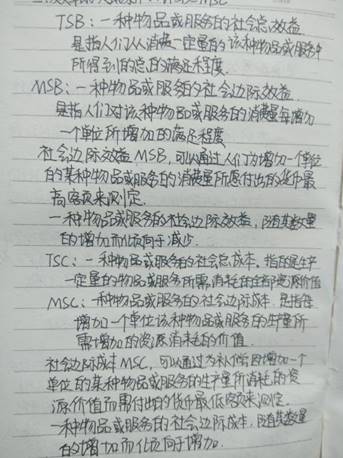 TSB：一种物品或服务的社会总效益
是指人们从消费一定量的该种物品或服务中
所得到的总的满足程度.
MSB：一种物品或服务的社会边际效益
是指人们对该种物品或服务的消费量每增加
一个单位所增加的满足程度
社会边际效益MSB,可以通过人们为增加一个单位
的某种物品或服务的消费量所愿付出的货币最
高额来测定.
一种物品或服务的社会边际效益,随其数量
的增加而倾向于减少.
TSC：一种物品或服务的社会总成本。指在生产
一定量的物品或服务所需消耗的全部资源价值
MSC：一种物品或服务的社会边际成本.是指每
增加一个单位该种物品或服务的生产量所
需增加的资源消耗的价值.
社会边际成本MSC,可以通过为补偿因增加一个
单位的某种物品或服务的生产量所消耗的资
源价值而需付出的货币最低额来测定.
一种物品或服务的社会边际成本,随其数量
的增加而倾向于增加.